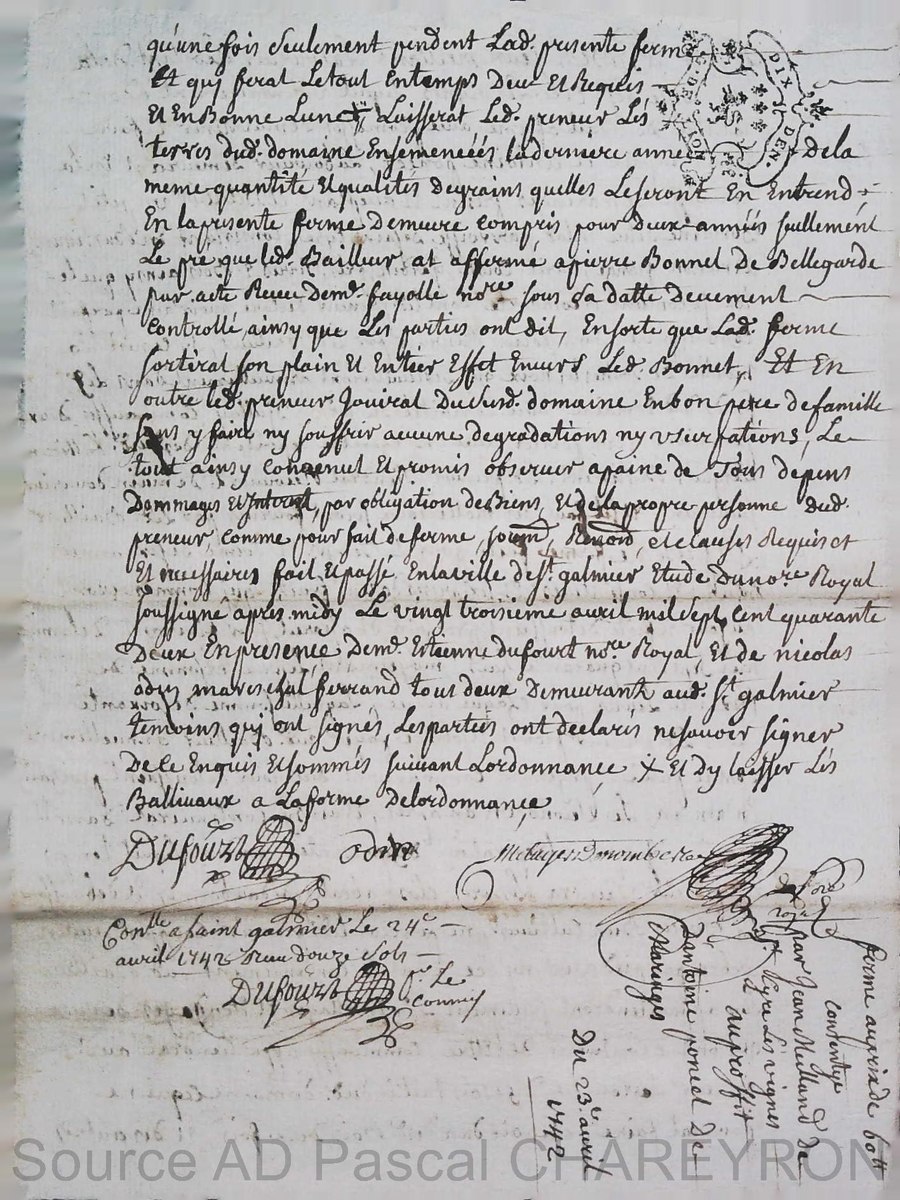 qu'une fois seulement pendent Lad. presente ferme
Et quy ferat Letout Entemps Deu Et Requis
Et En Bonne Lune Laisserat Led. preneur Lés
terres dud. domaine Ensemencéés La dernière année De la
meme quantité Et qualités de grains quelles Leseront En Entrend
En la presente ferme Demeure Compris pour Deux années seullement
Le pré que led. Bailleur at affermé a pierre Bonnel De Bellegarde
par acte Receu De me. fayolle nore. sous sa datte Deuement
Controllé, ainsy que Les parties ont dit, En sorte que Lad. ferme
sortirat son plain Et Entier Effet Envers Led. Bonnet, Et En
outre led. preneur Jouirat Du susd. domaine En bon pere de famille
sans y faire ny souffrir aucune degradations ny usurpations, Le
tout ainsy Convenut Et promis observer a paine de Tous depens
Dommages Et Interest, par obligation de Biens, Et de la propre personne dud.
preneur, comme pour fait de ferme, soumn, Renond, et clauses Requises
Et necessaires fait Et passé En la ville de St. galmier Etude du nore Royal
soussigné après midy Le vingt troisieme avril mil sept cent quarante
Deux En presence De me. Etienne dufourt nore Royal, Et de nicolas
odin mareschal ferrand tous deux Demeurants aud. St galmier
temoins quy ont signés, Les parties ont declarés ne savoir signer
De ce Enquis Et sommés suivant Lordonnance X Et Dy laisser Lés
Ballivaux a La forme De lordonnance
Dufourt odin
Conlle a saint galmier Le 24e
avril 1742 Recu douze sols
Dufourt pr. Le
Commis
ferme au prix de 60tt
consentye
par Jean Mulland de
St Cyr Les vignes
au proffit
Dantoine poncet de
Maringes
Du 23e. avril
1742
Source AD Pascal CHAREYRON